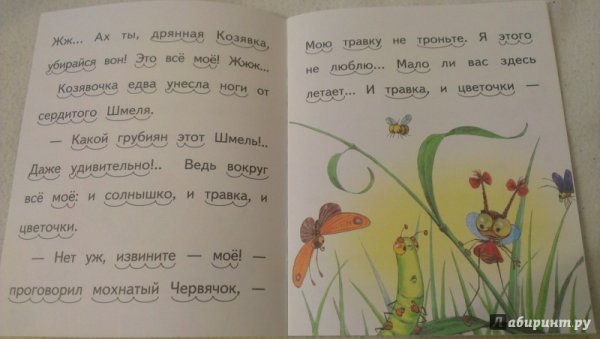 Жж... Ах ты, дрянная Козявка,
убирайся вон! Это всё моё! Жжж...
Козявочка едва унесла ноги от
сердитого Шмеля.
— Какой грубиян этот Шмель!..
Даже удивительно!.. Ведь вокруг
всё моё: и солнышко, и травка, и
цветочки.
— Нет уж, извините — моё! —
проговорил мохнатый Червячок, —
Мою травку не троньте. Я этого
не люблю... Мало ли вас здесь
летает... И травка, и цветочки —
Лабиринт.ру